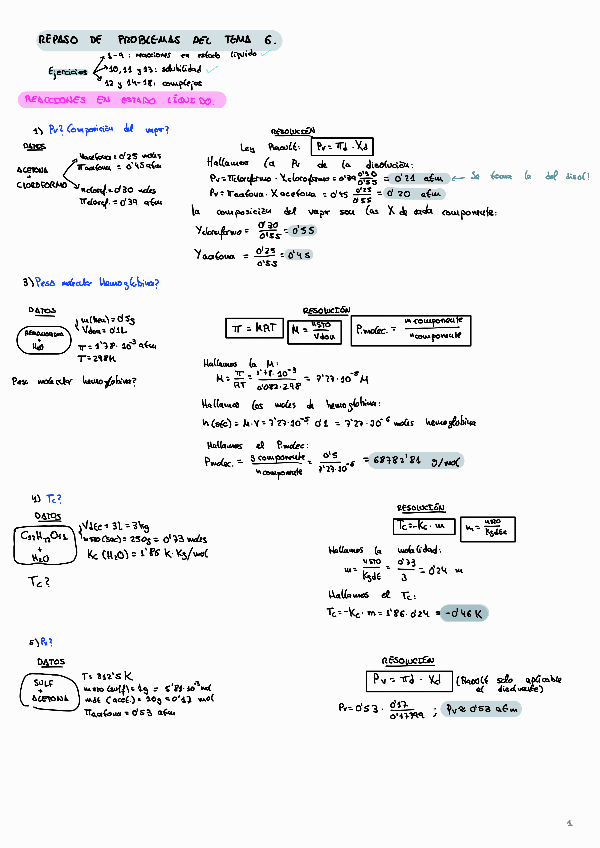 REPASO DE PROBLEMAS DEL TEMA 6.
Ejercicios
1-9: reacciones en estado líquido ✓
10, 11 y 13: solubilidad ✓
12 y 14-18: complejos
REACCIONES EN ESTADO LÍQUIDO.
1) Pv? Composición del vapor?
DATOS
ACETONA
+
CLOROFORMO
nacetona = 0'25 moles
πacetona = 0'45 atm
nclorof. = 0'30 moles
πclorof. = 0'39 atm
RESOLUCIÓN
Ley Raoult: Pv = πd · Xd
Hallamos la Pv de la disolución:
Pv = πcloroformo · Xcloroformo = 0'39 0'30/0'55 = 0'21 atm ← Se toma la del disol!
Pv = πacetona · Xacetona = 0'45 0'25/0'55 = 0'20 atm
la composición del vapor son las X de cada componente:
Ycloroformo = 0'30/0'55 = 0'55
Yacetona = 0'25/0'55 = 0'45
3) Peso molecular hemoglobina?
DATOS
+
H2O
m(hem) = 0'5g
Vdon = 0'1L
π = 1'78·10⁻³ atm
T = 298K
Peso molecular hemoglobina?
RESOLUCIÓN
π = MRT
M = nsto/Vdon
P.molec. = m componente/n componente
Hallamos la M:
M = π/RT = 1'78·10⁻³/0'082·298 = 7'27·10⁻⁵ M
Hallamos los moles de hemoglobina:
= M·V = 7'27·10⁻⁵ 0'1 = 7'27·10⁻⁶ moles hemoglobina
Hallamos el P.molec:
Pmolec. = g componente/n componente = 0'5/7'27·10⁻⁶ = 68782'81 g/mol
4) Tc?
DATOS
C12H22O11
+
H2O
Vdte = 3L = 3kg
msto(sac) = 250g = 0'73 moles
Kc (H2O) = 1'86 K·Kg/mol
Tc?
RESOLUCIÓN
Tc = -Kc · m
m = nsto/Kgdte
Hallamos la molalidad:
m = nsto/Kgdte = 0'73/3 = 0'24 m
Hallamos el Tc:
Tc = -Kc · m = 1'86 · 0'24 = -0'46 K
5) Pv?
DATOS
SULF
+
ACETONA
T = 312'5 K
msto (sulf) = 1g = 5'81·10⁻³ mol
mdte (acet.) = 10g = 0'17 mol
πacetona = 0'53 atm
RESOLUCIÓN
Pv = πd · Xd (Raoult solo aplicable
al disolvente)
Pv = 0'53 · 0'17/0'17799 ; Pv ≈ 0'53 atm
1